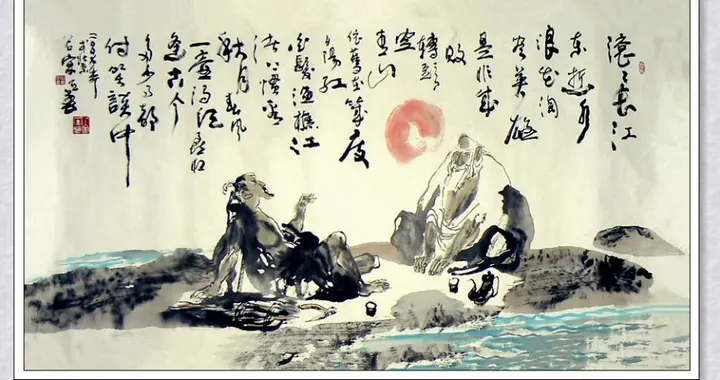 滚々长江
东逝水
浪花淘
尽英雄
是非成
败
转头
空
青山
依旧在几度
夕阳红
白髮渔樵江
渚上惯看
秋月春风
一壶浊酒喜相
逢古今
多少事都
付笑谈中